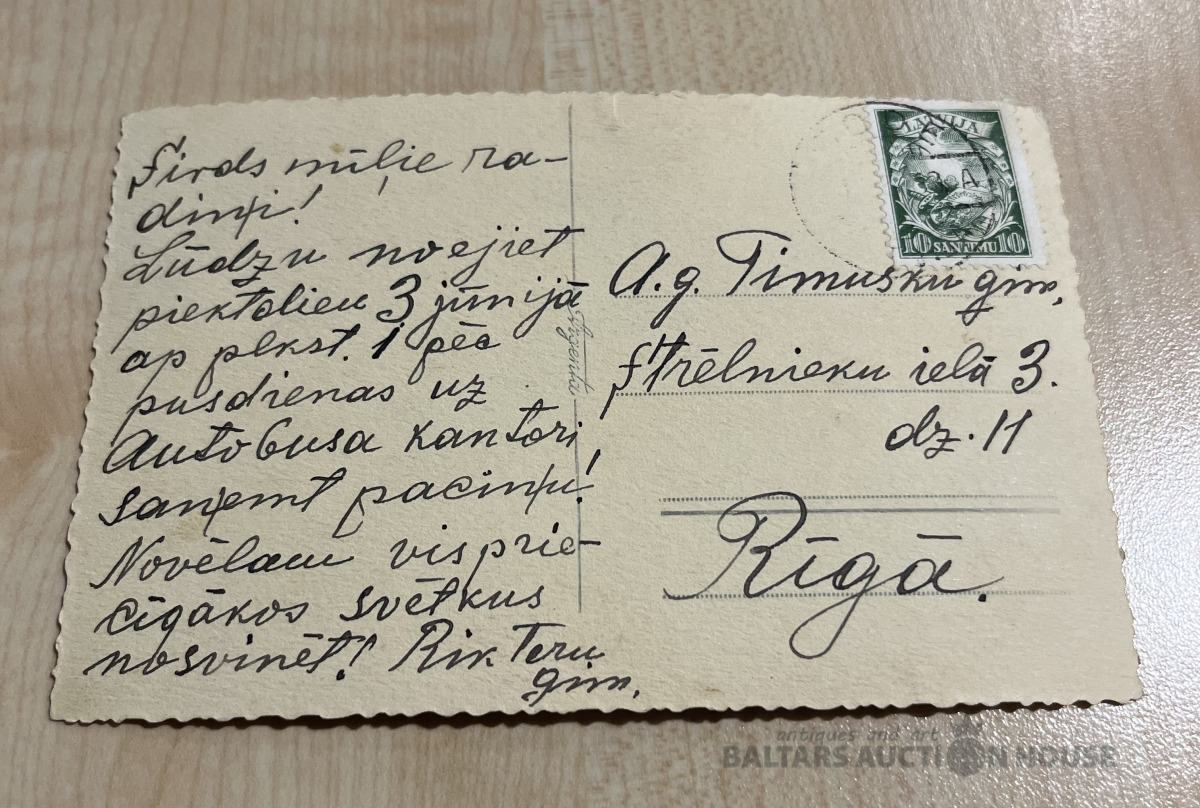 Sirds mīļie ra-
diņi!
Lūdzu noejiet
piektdien 3 jūnijā
ap plkst. 1 pēc
pusdienas uz
Autobusa kantori
saņemt paciņu!
Novēlam visprie-
cīgākos svētkus
nosvinēt! Rikteru
gim.
LATVIJA
10 SANTIMU 10
A. g. Timušku gim.
Strēlnieku ielā 3.
dz. 11
Rīgā.
antiques and art
BALTARS AUCTION HOUSE